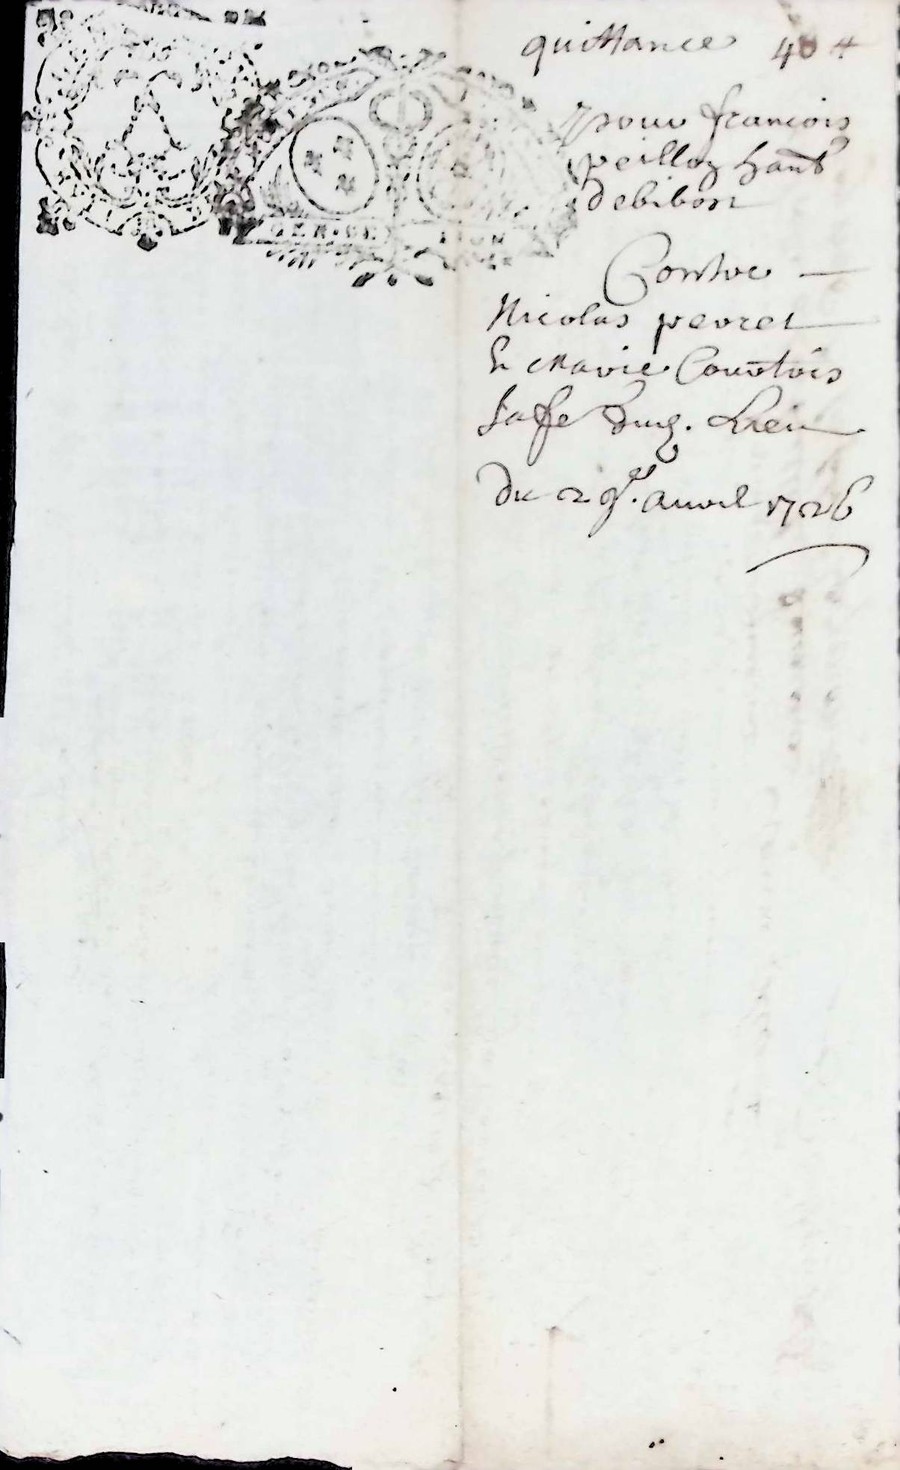 quittance 40 ₶
pour francois
peilloz hant
de bibost
Contre
Nicolas pevret
Et Marie Courtois
Sa fe dud. Lieu
du 29e. avril 1726